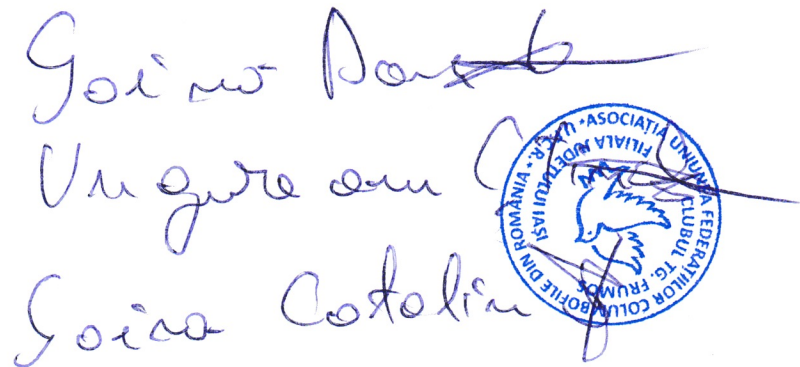 Goina
Ungureanu
Goina Catalin
* ASOCIAȚIA UNIUNEA FEDERAȚIILOR COLUMBOFILE DIN ROMÂNIA * U.F.C.R.
FILIALA JUDEȚULUI IAȘI
CLUBUL TG. FRUMOS